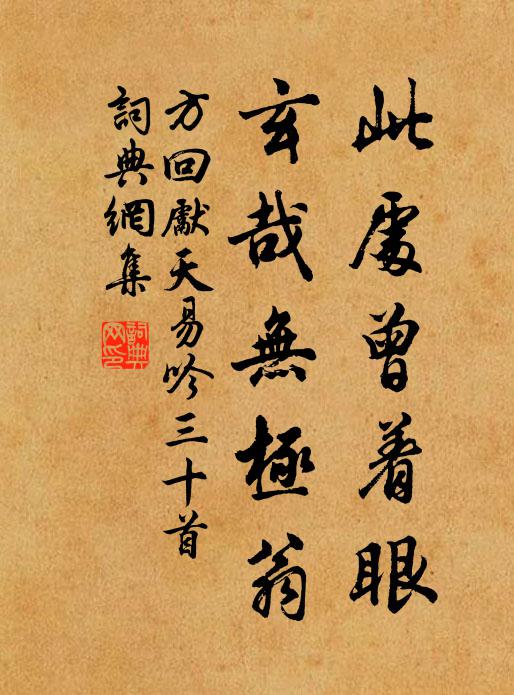 此處曾着眼
玄哉無極翁
方回獻天易吟三十首
詞典網集
詞典網印